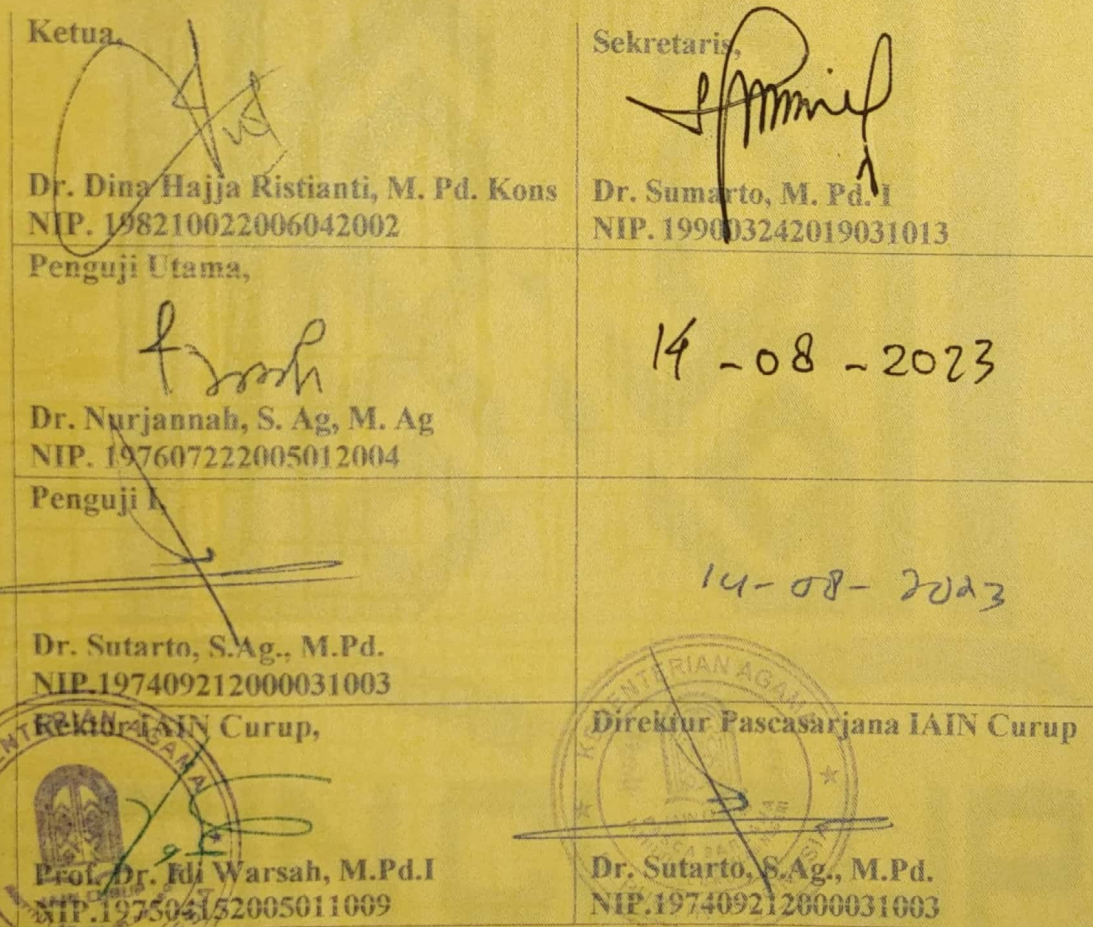 Ketua,
Dr. Dina Hajja Ristianti, M. Pd. Kons
NIP. 198210022006042002
Sekretaris,
Dr. Sumarto, M. Pd. I
NIP. 199003242019031013
Penguji Utama,
Dr. Nurjannah, S. Ag, M. Ag
NIP. 197607222005012004
14 - 08 - 2023
Penguji I,
Dr. Sutarto, S.Ag., M.Pd.
NIP.197409212000031003
14 - 08 - 2023
Rektor IAIN Curup,
Prof. Dr. Idi Warsah, M.Pd.I
NIP.197504152005011009
Direktur Pascasarjana IAIN Curup
Dr. Sutarto, S.Ag., M.Pd.
NIP.197409212000031003
KEMENTERIAN AGAMA